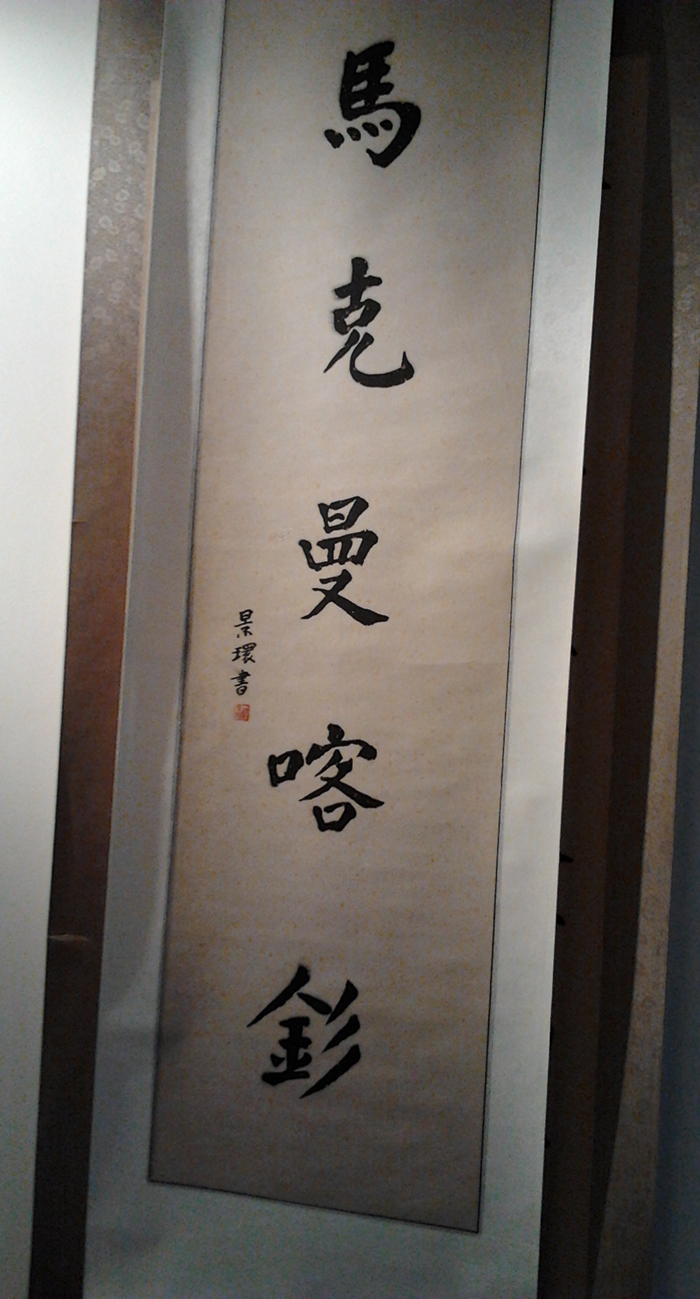 馬克曼喀釤
景環書